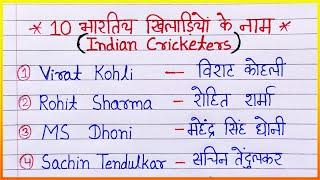 * 10 भारतिय खिलाड़ियों के नाम *
(Indian Cricketers)
① Virat Kohli — विराट कोहली
② Rohit Sharma — रोहित शर्मा
③ MS Dhoni — महेंद्र सिंह धोनी
④ Sachin Tendulkar - सचिन तेंदुलकर